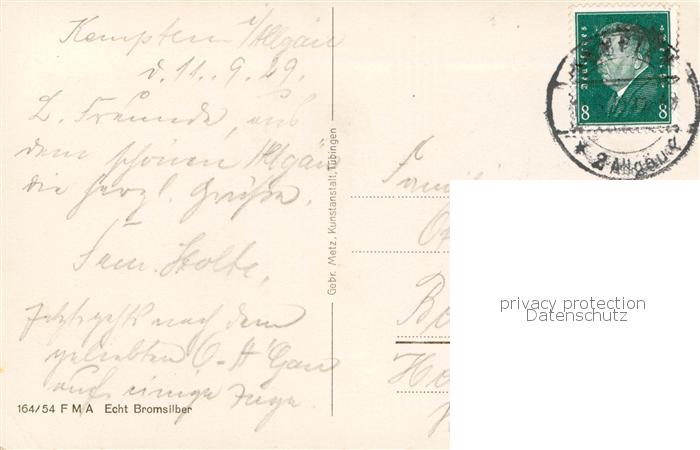 Kempten i/Allgäu
d. 11. 9. 29.
L. Freunde, aus
dem schönen Allgäu
die herzl. Grüße.
Fam. Nolte,
Jetzt geht's nach dem
geliebten O-A'Gau
auf einige Tage.
164/54 F M A Echt Bromsilber
Gebr. Metz, Kunstanstalt, Tübingen
Deutsches Reich
8 8
* Allgäu
Famili
privacy protection
Datenschutz